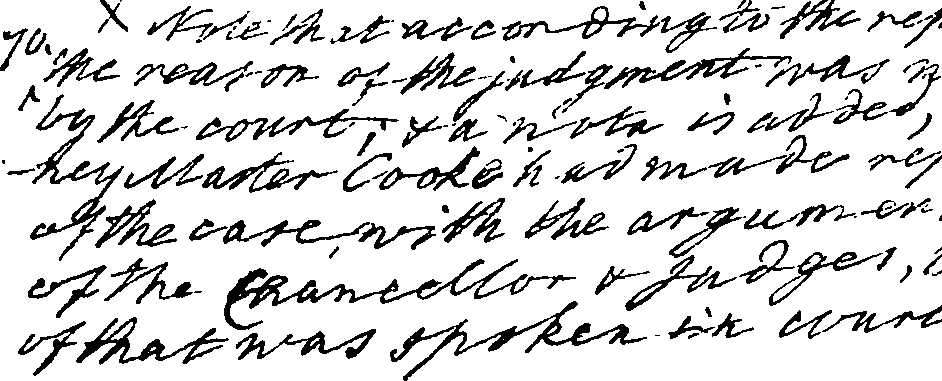 X Note that according to the rep
70. the reason of the judgment was n
by the court; & a nota is added,
-ney Master Cooke had made rep
of the case, with the argumen
of the Chancellor & Judges,
of that was spoken in court